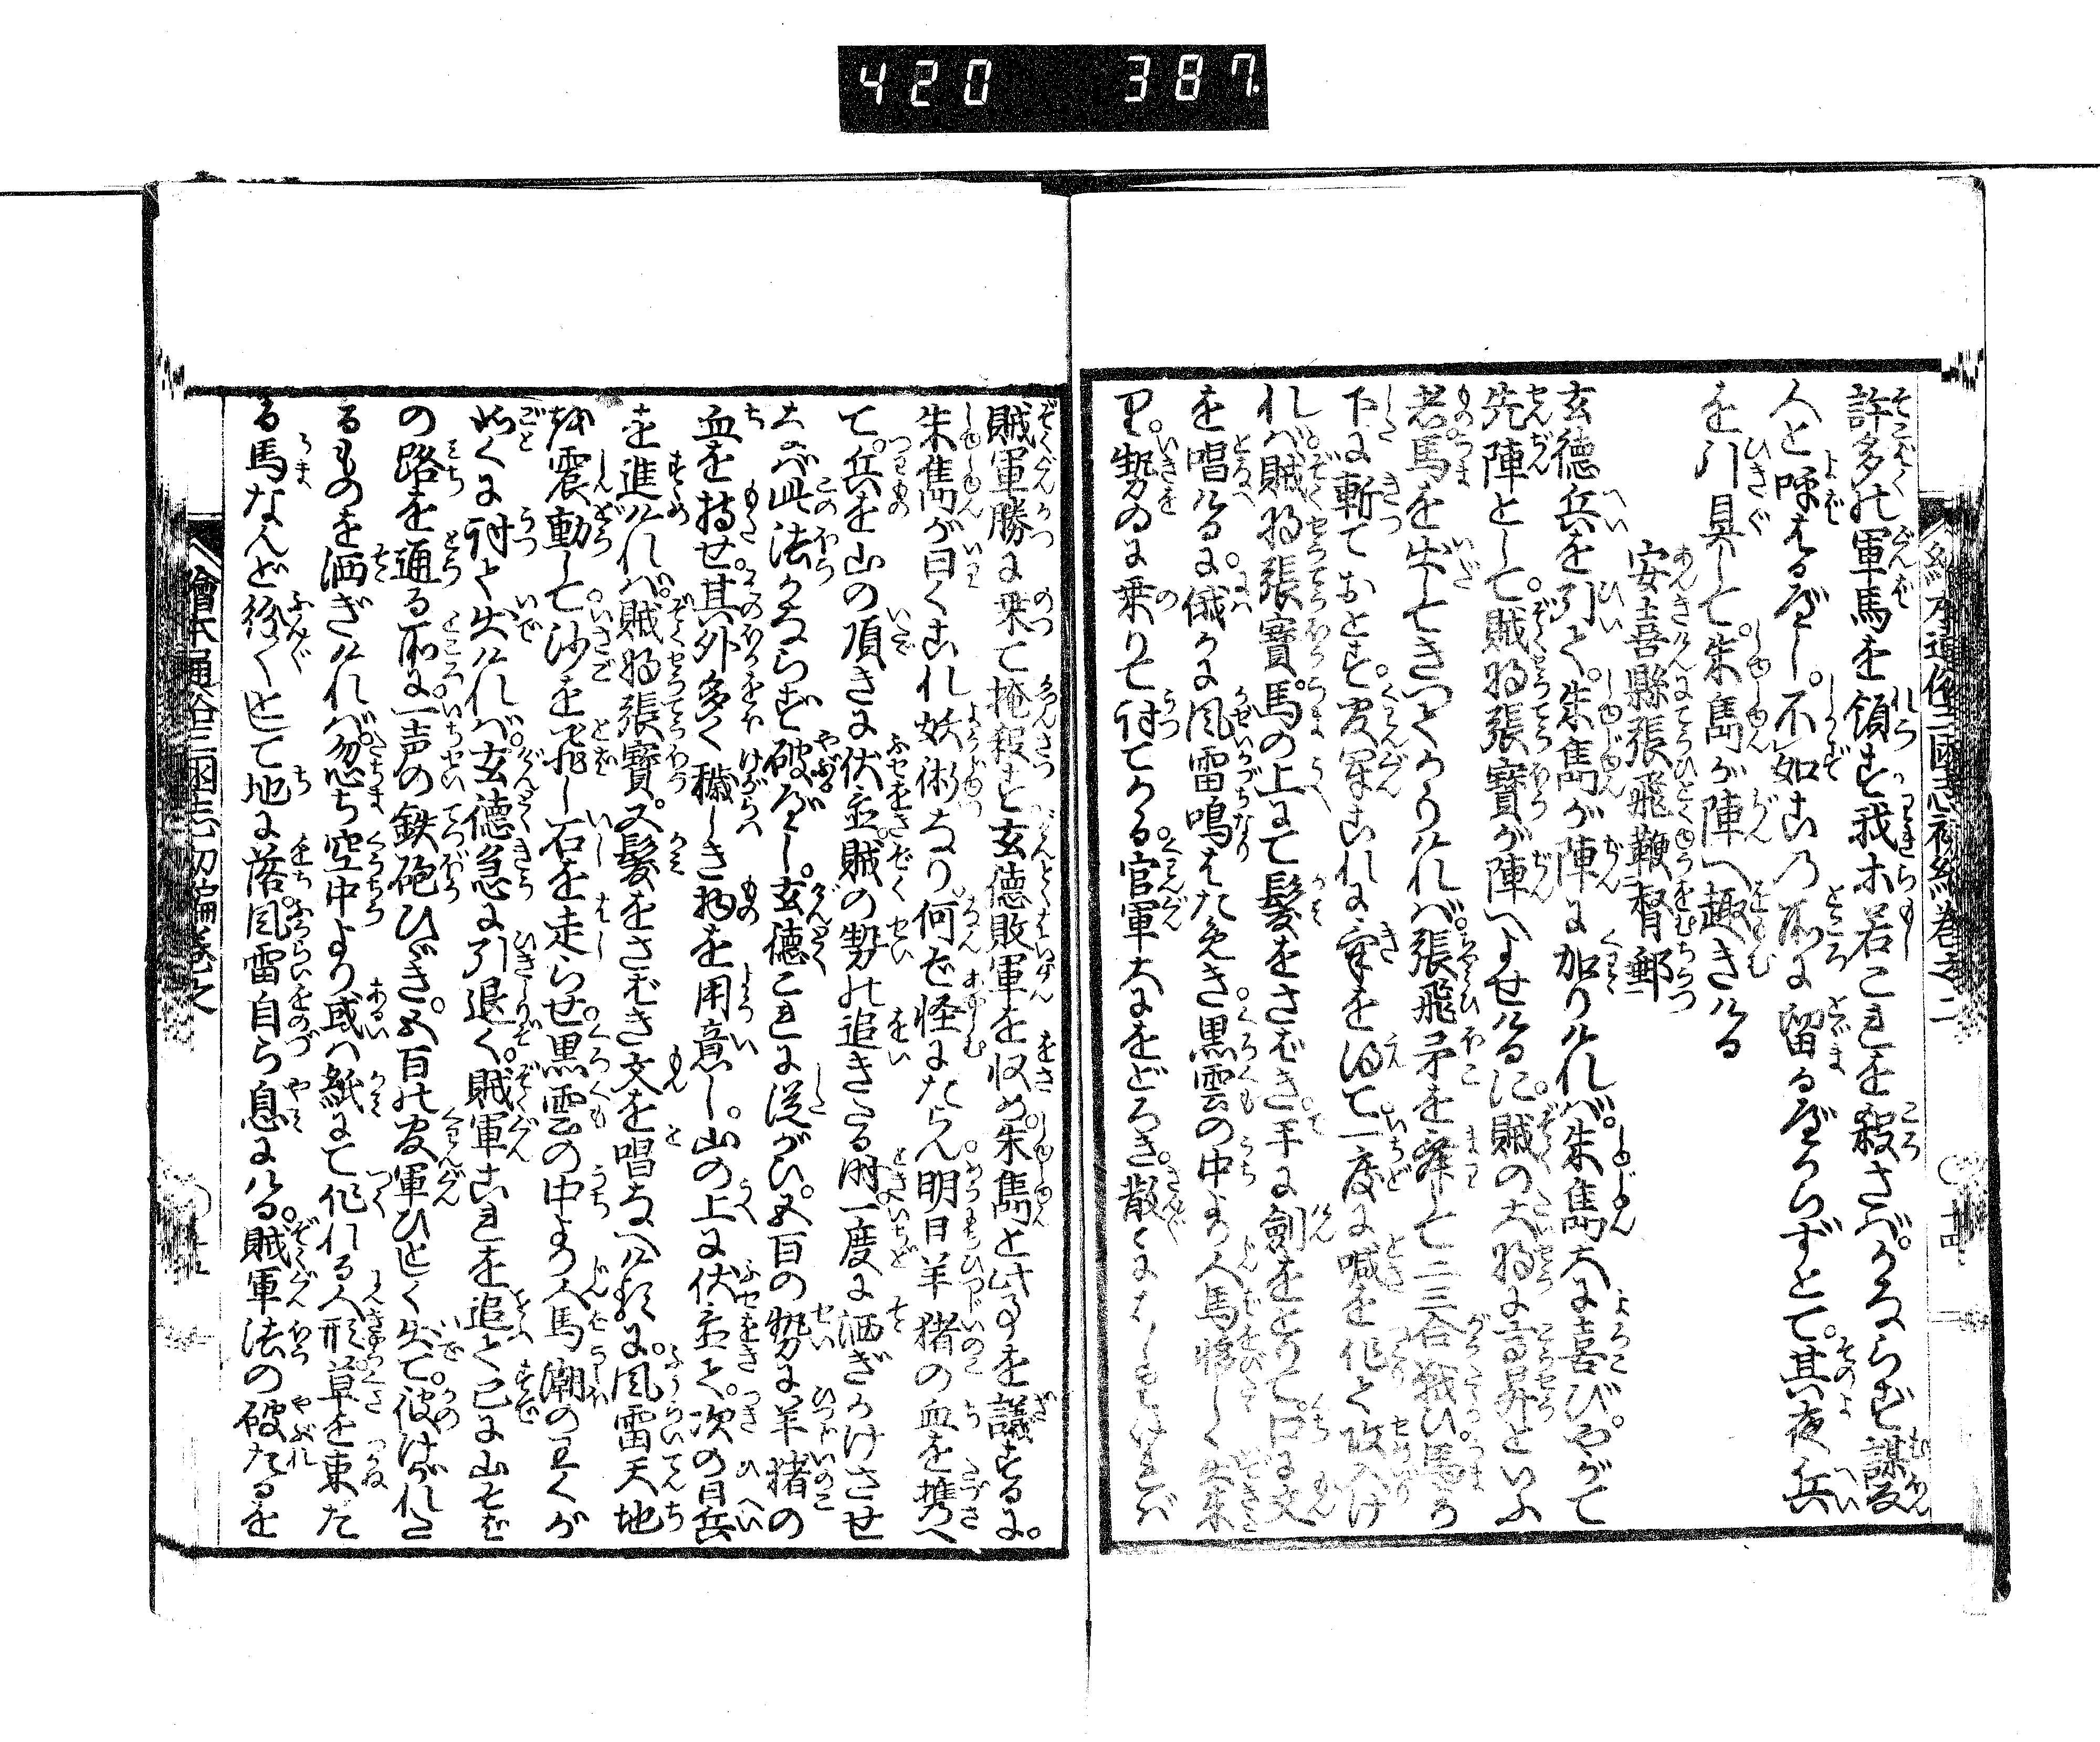 420 387
許多の軍馬を領す我ホ若これを殺さば。かならず謀反
人と呼るべし。不如この所に留るべからずとて。其夜兵
を引具して。朱雋が陣へ趣きける
安喜縣張飛鞭督郵
玄徳兵を引て。朱雋が陣に加りければ。朱雋大に喜び。やがて
先陣として。賊将張寳が陣へよせけるに。賊の大将に高昇といふ
者馬を出してきつてかゝりければ。張飛矛を舞して二三合戦ひ。馬より
下に斬ておとす。官軍これに気を得て一度に喊を作て攻入け
れば。賊将張寳。馬の上にて髪をさばき。手に劔をとりて。口に文
を唱けるに。俄かに風雷鳴はためき黒雲の中より人馬夥しく出来
り。勢ひに乗りて討てかゝる。官軍大におどろき。散〻に
賊軍勝に乗て掩殺す玄徳敗軍を収め。朱雋と此事を議するに。
朱雋が曰くこれ妖術なり何ぞ怪にたらん明日羊猪の血を携へ
て。兵を山の頂きに伏置。賊の勢の追きたる時。一度に洒ぎかけさせ
なば此法かならず破べし。玄徳これに従がひ。五百の勢に羊猪の
血を持せ。其外多く穢しき物を用意し。山の上に伏置て。次の日兵
を進ければ。賊将張寳。又髪をさばき文を唱なへける。に。風雷天地
を震動して沙を飛し石を走らせ。黒雲の中より人馬潮のわくが
如くに討て出ければ。玄徳急に引退く。賊軍これを追て已に山そば
の路を通る所に。一声の鉄砲ひゞき。五百の官軍ひとしく出て。彼けがれた
るものを洒ぎければ。忽ち空中より或ハ紙にて作れる人形。草を束た
る馬なんど紛〻として地に落。風雷自ら息にける。賊軍法の破たるを
繪本通俗三國志初編巻之